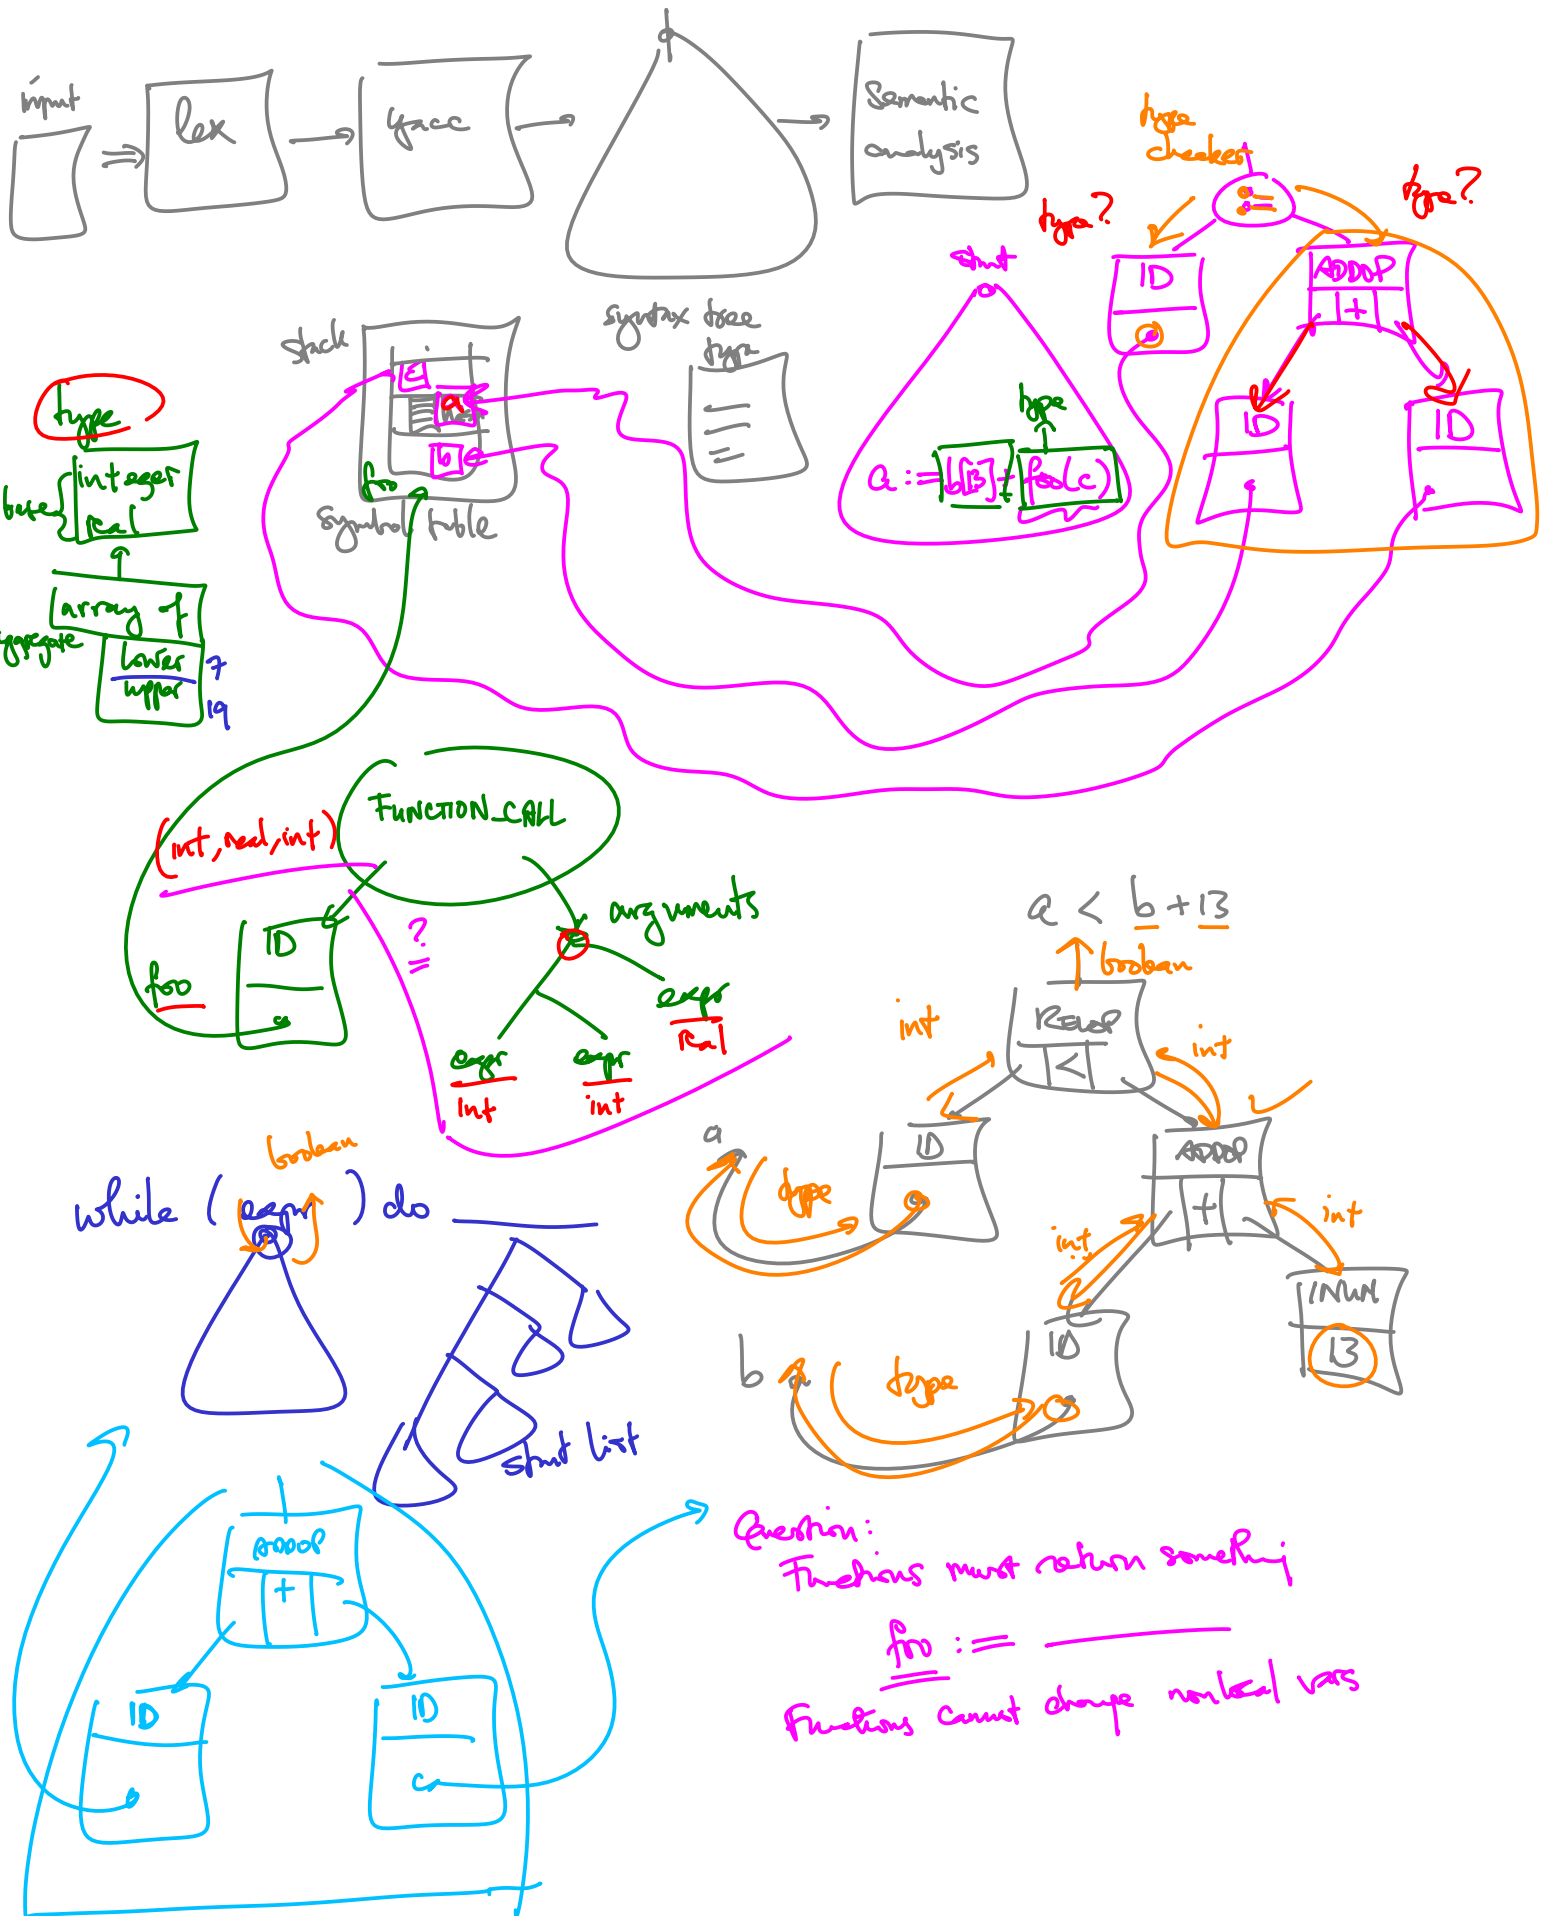 input
lex
yacc
Semantic
analysis
type
checker
type?
type?
:=
ID
ADDOP
+
ID
ID
stmt
type
a := b[13] + foo(c)
syntax tree
type
stack
c
a
b
foo
symbol table
type
base
integer
real
array of
aggregate
lower 7
upper 19
FUNCTION_CALL
(int, real, int)
?
arguments
ID
foo
expr
real
expr
int
expr
int
a < b + 13
boolean
int
RELOP
<
int
a
type
ID
ADDOP
+
int
int
b
type
ID
INUM
13
boolean
while (expr) do
stmt list
ADDOP
+
ID
ID
Question:
Functions must return somethi
foo :=
Functions cannot change nonlocal vars